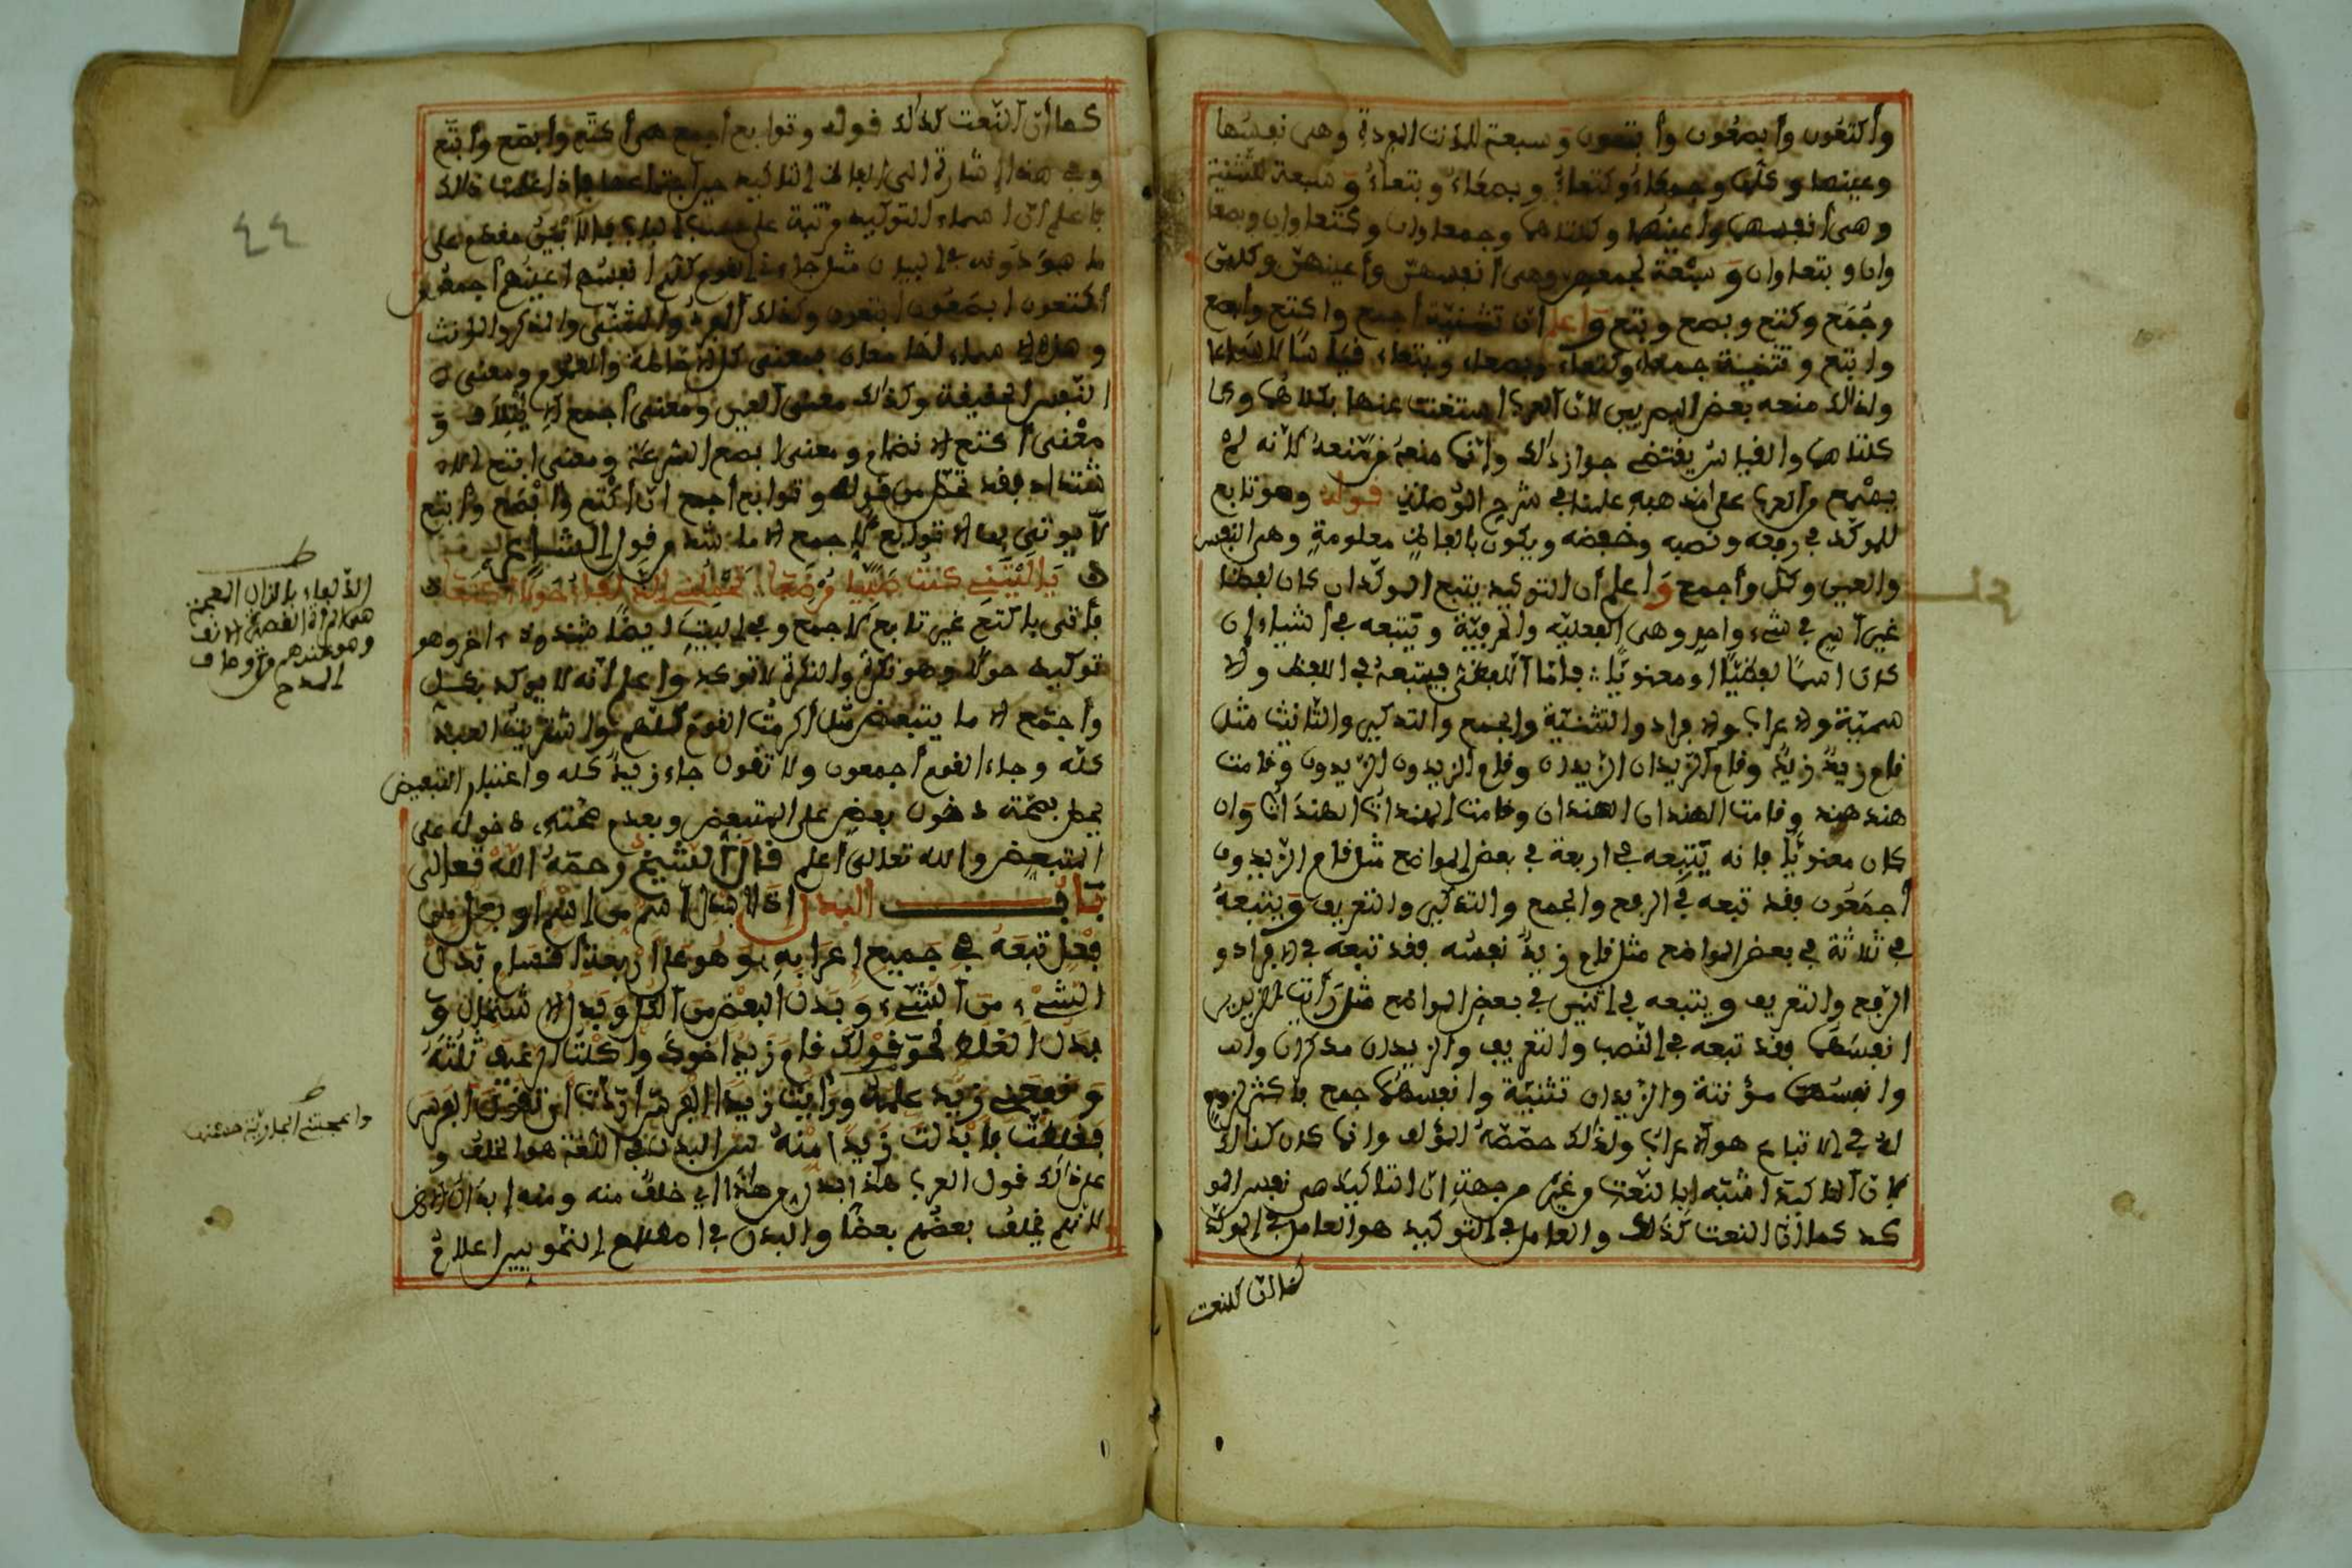 وأكتعون وأبصعون وأبتعون وسبعة للمؤنث المفردة وهى نفسها
وعينها وكلها وجمعاء وكتعاء وبصعاء وبتعاء وسبعة للتثنية
وهى أنفسهما وأعينهما وكلتاهما وجمعاوان وكتعاوان وبصعا
وان وبتعاوان وسبعة لجمعهن وهى أنفسهن وأعينهن وكلهن
وجمع وكتع وبصع وبتع واعلم ان تثنية أجمع واكتع وابصع
وابتع وتثنية جمعاء وكتعاء وبصعاء وبتعاء
ولذالك منعه بعض البصريين لان العرب استغنت عنها بكلاهما و
كلتاهما والقياس يقتضى جواز ذالك وانما منعه من منعه لانه لم
يسمع من العرب على مذهبه علمنا فى شرح قوله وهو تابع
للموكد في رفعه ونصبه وخفضه ويكون بالفاظ معلومة وهى النفس
والعين وكل وأجمع واعلم أن التوكيد يتبع الموكد ان كان لفظا
غير اسم فى شيء واحد وهى الفعلية والحرفية ويتبعه في أشياء ان
كان اسما لفظيا او معنويا فاما اللفظى فيتبعه فى اللفظ والا
سمية والاعراب والافراد والتثنية والجمع والتذكير والتانيث مثل
قام زيد زيد وقام الزيدان الزيدان وقام الزيدون الزيدون وقامت
هند هند وقامت الهندان الهندان وقامت الهندات الهندات وان
كان معنويا فانه يتبعه في اربعة في بعض المواضع مثل قام الزيدون
أجمعون فقد تبعه في الرفع والجمع والتذكير والتعريف ويتبعه
في ثلاثة في بعض المواضع مثل قام زيد نفسه فقد تبعه في الافراد و
الرفع والتعريف ويتبعه في اثنين في بعض المواضع مثل رأيت الزيدين
انفسهما فقد تبعه في النصب والتعريف والزيدان مذكران وانـ
وانفسهما مؤنثة والزيدان تثنية وانفسهما جمع فاكثر لزوم
له في الاتباع هو الاعراب ولذالك خصصه المؤلف وانما كان كذالك
لان التاكيد اشبه بالنعت من غيره من جهة ان التاكيد هى نفس المو
كد كما ان النعت كذالك والعامل في التوكيد هو العامل في الموكد
كما ان النعت كذالك قوله وتوابع أجمع هى أكتع وأبصع وأبتع
وفى هذه اشارة الى الفاظ التاكيد حين اجتماعها فاذا علمت ذالك
فاعلم ان اسماء التوكيد مرتبة على حسب مقدم على
ما هو دونه في البيان مثل جاءنى القوم كلهم أنفسهم أعينهم أجمعون
أكتعون أبصعون أبتعون وكذالك المفرد والمثنى والمذكر والمؤنث
وهاذه الاسماء لها معان فمعنى كل الاحاطة والعموم ومعنى ا
النفس الحقيقة وكذالك معنى العين ومعنى أجمع و
معنى أكتع الانضمام ومعنى ابصع الشرعة ومعنى ابتع الا
شتداد فقد من قوله وتوابع اجمع ان اكتع وابصع وأبتع
لا يوتى بها الا توابع لاجمع الا ما شذ من قول الشاعر
يا ليتنى كنت صبيا مرضعا تحملنى الذلفاء حولا أكتعا
فأتى باكتع غير تابع لاجمع وفي البيت أيضا شذوذ ءاخر وهو
توكيد حولا وهو نكرة والنكرة لا توكد واعلم انه لا يوكد بكل
وأجمع الا ما يتبعض مثل أكرمت القوم كلهم واشتريت العبد
كله وجاء القوم أجمعون ولا تقول جاء زيد كله واعتبار التبعيض
بصحة دخول بعض على المتبعض وبعدم صحته دخوله على
المتبعض والله تعالى أعلم قال الشيخ رحمه الله تعالى
باب البدل اذا ابدل اسم من اسم او فعل من
فعل تبعه في جميع إعرابه وهو على أربعة أقسام بدل
الشيء من الشيء وبدل البعض من الكل وبدل الاشتمال و
بدل الغلط نحو قولك قام زيد اخوك واكلت الرغيف ثلثه
ونفعنى زيد علمه ورأيت زيدا الفرس اردت ان تقول الفرس
فغلطت فابدلت زيدا منه البدل في اللغة هو الخلف و
على ذالك قول العرب هذا بدل من هذا اي خلف منه ومنه
لانهم يخلف بعضهم بعضا والبدل في اصطلاح النحويين اعلام
كما ان النعت
٤٤
ط
الذلفاء بالذال المعجمة
هى المرأة القصيرة الانف
وهو عندهم من أوصاف
المدح
ط
واعجبتنى الجارية حسنها